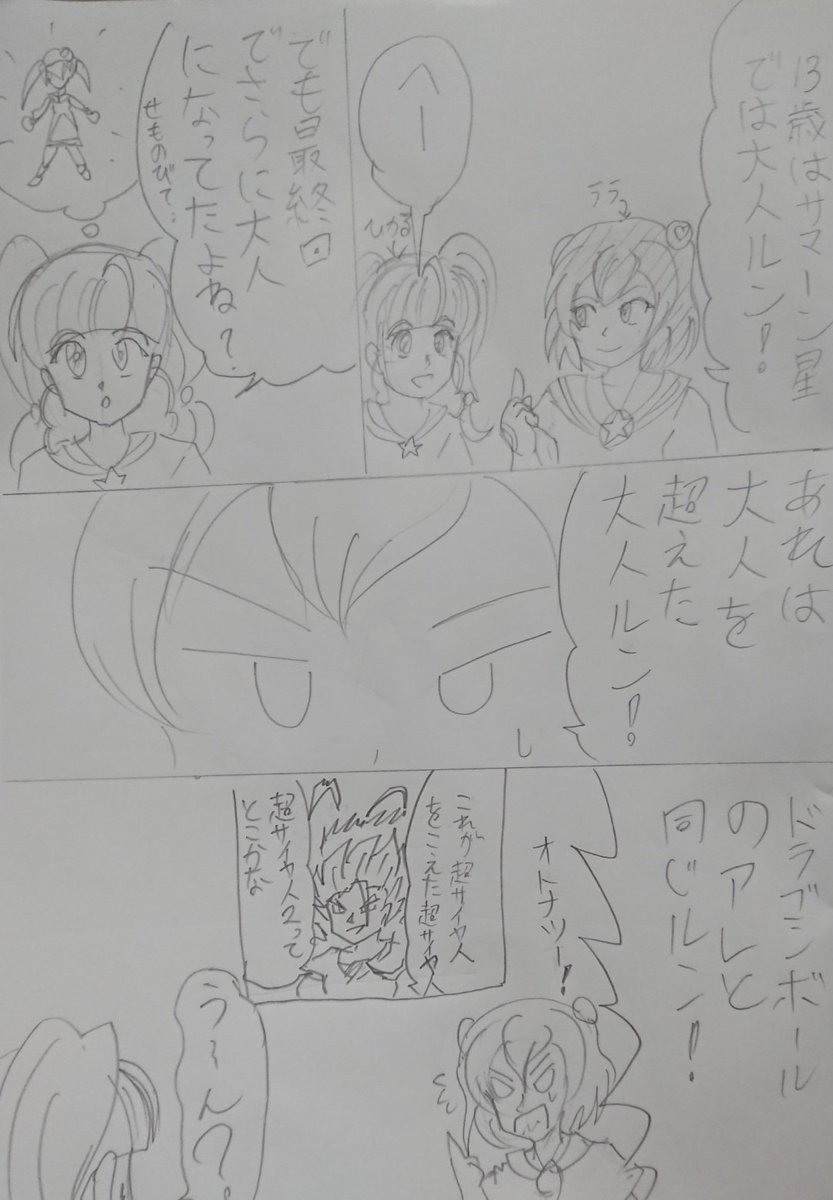 13歳はサマーン星
では大人ルン!
ララ
へー
ひかる
でも最終回
でさらに大人
になってたよね?
せものびて…
あれは
大人を
超えた
大人ルン!
ドラゴンボール
のアレと
同じルン!
オトナツー!
これが超サイヤ人
をこえた超サイヤ人
超サイヤ人2って
とこかな
う~ん?